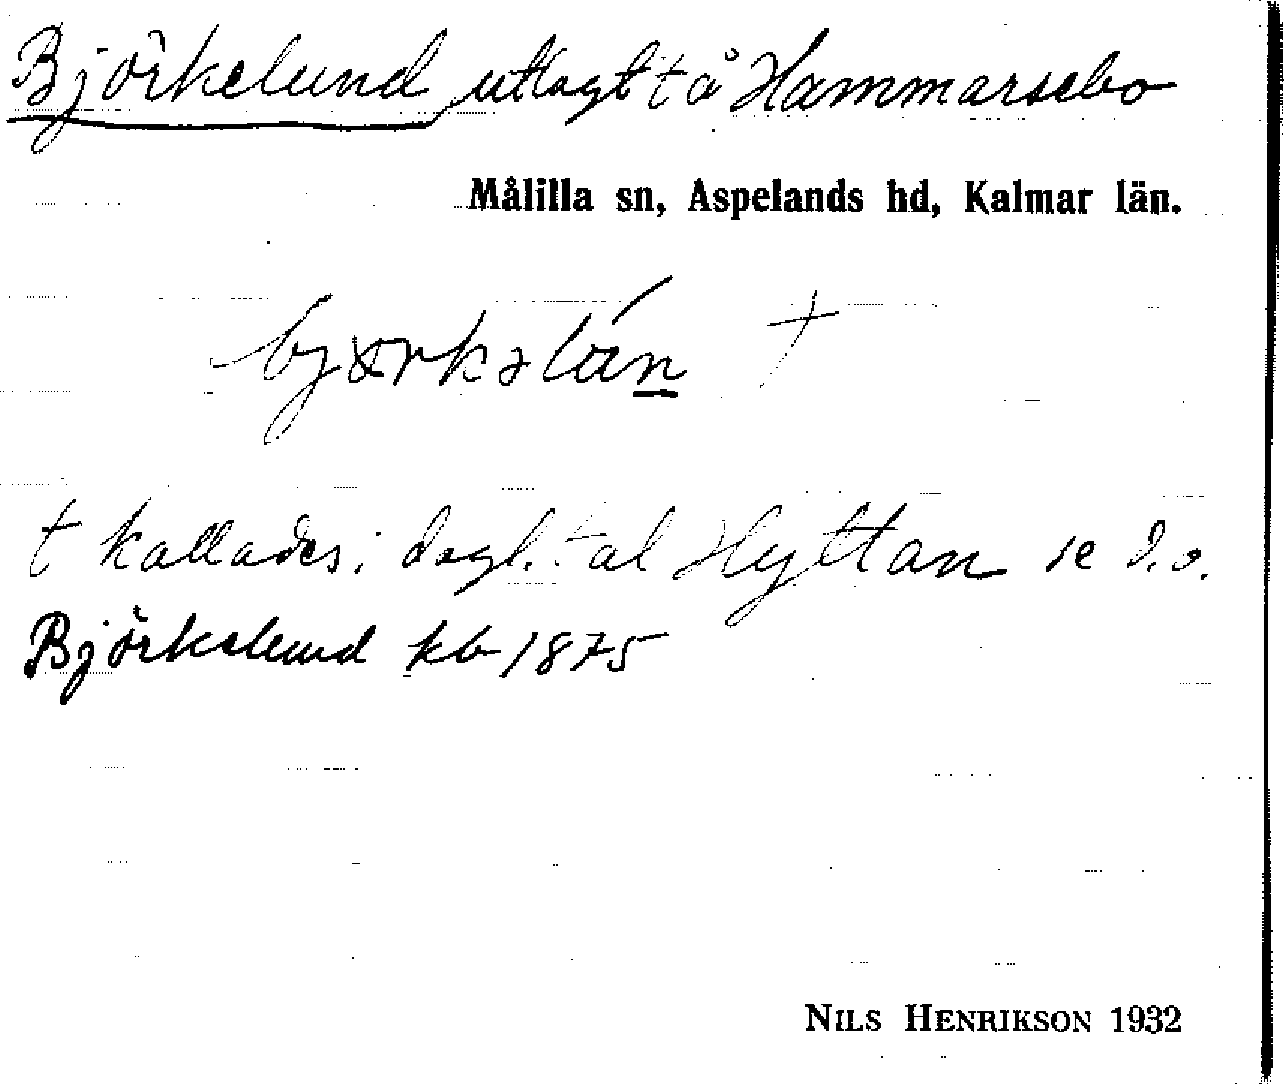 Björkelund, utlagt t å Hammarsebo
Målilla sn, Aspelands hd, Kalmar län.
t kallades i dagl. tal Hyttan se d.o.
Björkelund kb 1875
NILS HENRIKSON 1932